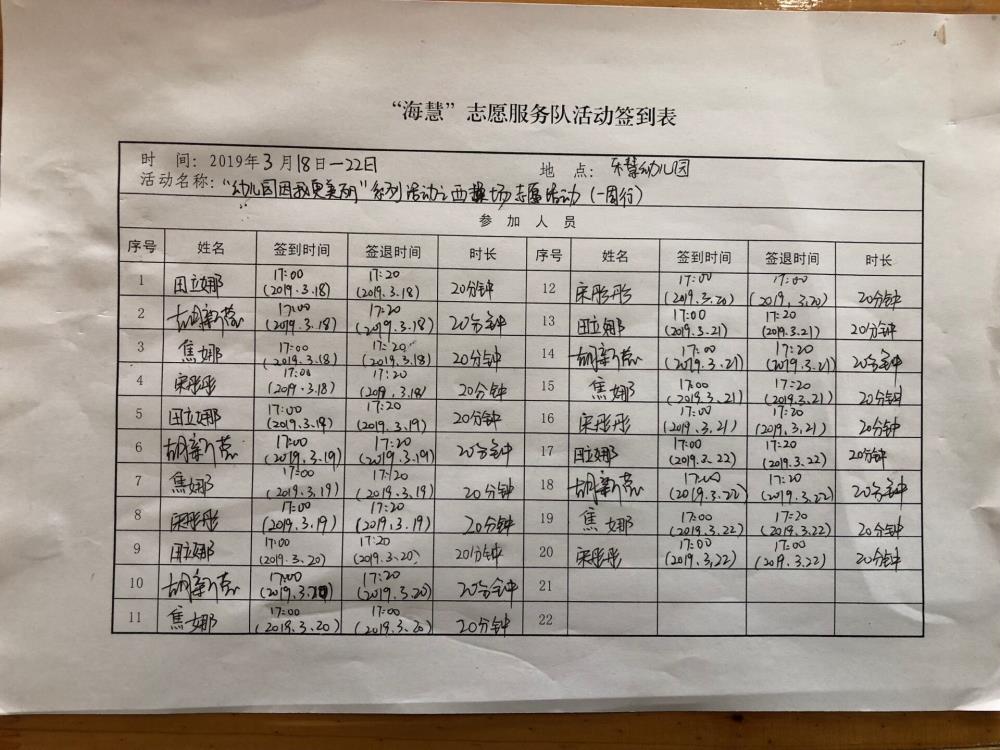 “海慧”志愿服务队活动签到表
时 间：2019年3月18日—22日 地 点：乐慧幼儿园
活动名称：“幼儿园因我更美丽”系列活动之西操场志愿活动（一周行）
参 加 人 员
序号 姓名 签到时间 签退时间 时长 序号 姓名 签到时间 签退时间 时长
1 田立娜 17:00 (2019.3.18) 17:20 (2019.3.18) 20分钟 12 宋彤彤 17:00 (2019.3.20) 17:00 (2019.3.20) 20分钟
2 胡新蕊 17:00 (2019.3.18) 17:20 (2019.3.18) 20分钟 13 田立娜 17:00 (2019.3.21) 17:20 (2019.3.21) 20分钟
3 焦娜 17:00 (2019.3.18) 17:20 (2019.3.18) 20分钟 14 胡新蕊 17:00 (2019.3.21) 17:20 (2019.3.21) 20分钟
4 宋彤彤 17:00 (2019.3.18) 17:20 (2019.3.18) 20分钟 15 焦娜 17:00 (2019.3.21) 17:20 (2019.3.21) 20分钟
5 田立娜 17:00 (2019.3.19) 17:20 (2019.3.19) 20分钟 16 宋彤彤 17:00 (2019.3.21) 17:20 (2019.3.21) 20分钟
6 胡新蕊 17:00 (2019.3.19) 17:20 (2019.3.19) 20分钟 17 田立娜 17:00 (2019.3.22) 17:20 (2019.3.22) 20分钟
7 焦娜 17:00 (2019.3.19) 17:20 (2019.3.19) 20分钟 18 胡新蕊 17:00 (2019.3.22) 17:20 (2019.3.22) 20分钟
8 宋彤彤 17:00 (2019.3.19) 17:20 (2019.3.19) 20分钟 19 焦娜 17:00 (2019.3.22) 17:20 (2019.3.22) 20分钟
9 田立娜 17:00 (2019.3.20) 17:20 (2019.3.20) 20分钟 20 宋彤彤 17:00 (2019.3.22) 17:00 (2019.3.22) 20分钟
10 胡新蕊 17:00 (2019.3.20) 17:20 (2019.3.20) 20分钟 21
11 焦娜 17:00 (2019.3.20) 17:00 (2019.3.20) 20分钟 22